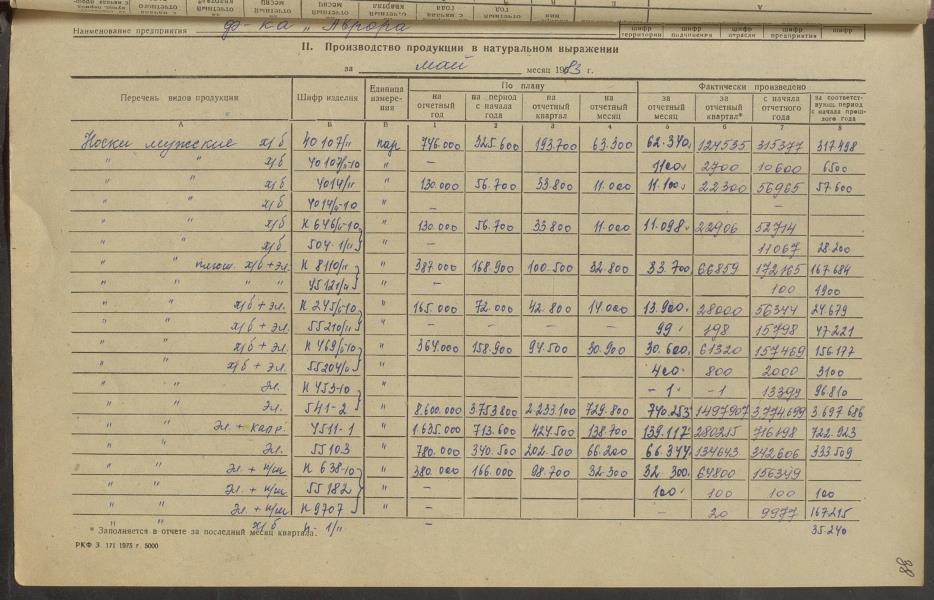 Наименование предприятия ф-ка „Аврора
шифр территории шифр шифр отрасли шифр предприятия шифр
II. Производство продукции в натуральном выражении
за май месяц 1983 г.
Перечень видов продукции Шифр изделия Единица измерения По плану Фактически произведено
на отчетный год на период с начала года на отчетный квартал на отчетный месяц за отчетный месяц за отчетный квартал* с начала отчетного года за соответствующ. период с начала прошлого года
А Б В 1 2 3 4 5 6 7 8
Носки мужские х/б 40107/11 пар 746.000 325.600 193.700 63.300 62.340 124535 315377 317.498
" " х/б 40107/5-10 " — 1100 2700 10600 6500
" " х/б 4014/11 " 130.000 56.700 33.800 11.000 11.100 22300 56965 57.600
" " х/б 4014/5-10 " — —
" " х/б К646/5-10 " 130.000 56.700 33.800 11.000 11.098 22906 52714
" " х/б 504-1/11 " — 11067 28.200
" " плюш. х/б+эл. К 8110/11 " 387.000 168.900 100.500 32.800 33.700 66859 172165 167.684
" " " " " — 100 1900
" " х/б+эл. К 245/5-10 " 165.000 72.000 42.800 14.000 13.900 28000 56344 24.679
" " х/б+эл. 55210/11 " — — — — 99 198 15798 47.221
" " х/б+эл. К 469/5-10 " 364.000 158.900 94.500 30.900 30.600 61320 157469 156.177
" " х/б+эл. 55204/11 400 800 2000 3100
" " эл. К 453-10 " — 1 -1 13399 96.810
" " эл. 541-2 " 8.600.000 3753800 2.233.100 729.800 740.253 1497907 3774699 3.697.686
" " эл.+капр. 4511-1 " 1.635.000 713.600 424.500 138.700 139.117 280215 716198 722.923
" " эл. 55103 " 780.000 340.500 202.500 66.200 66.344 134643 342606 333509
" " эл.+п/ш К 638-10 " 380.000 166.000 98.700 32.300 32.300 64800 156349
" " эл.+п/ш 55182 " — 100 100 100 100
" " эл.+п/ш К 9707 " — — 20 9977 167.215
" " х/б — 35.240
* Заполняется в отчете за последний месяц квартала.
РКФ З. 171 1975 г. 5000